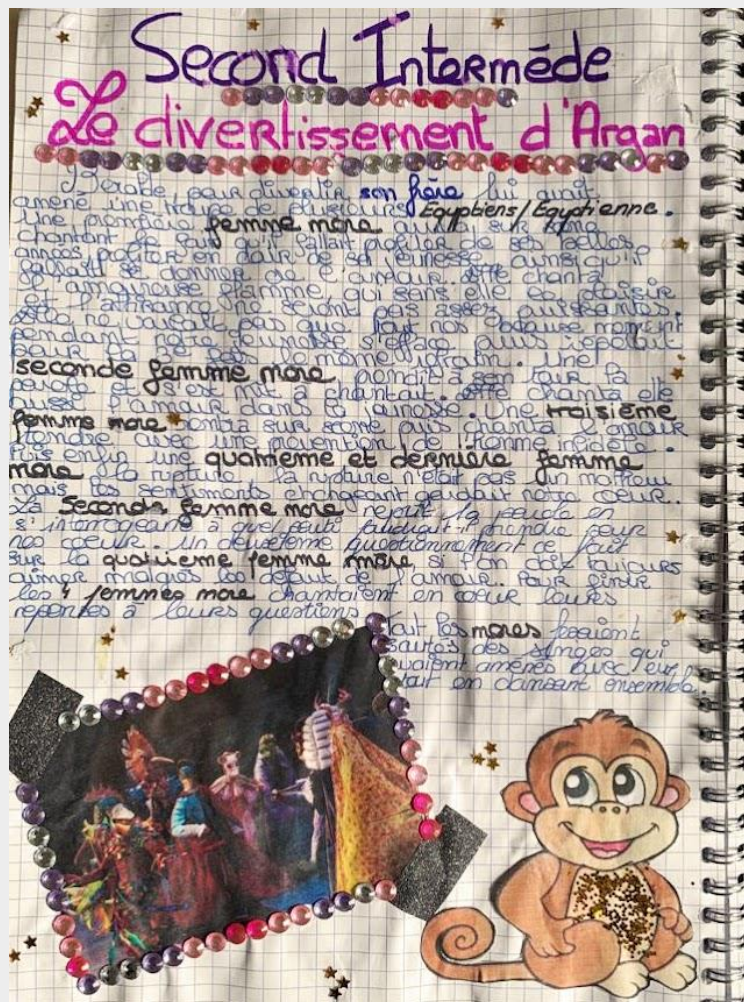 Second Intermède
Le divertissement d'Argan
Béralde pour divertir son frère lui avait
amené une troupe de plusieurs Egyptiens/Egyptienne.
Une première femme more sur
chantant qu'il fallait profiler de ses belles
années profiter en clair de sa jeunesse ainsi qu'il
fallait se donner de l'amour. elle chanta
l'amoureuse flamme, qui sans elle le plaisir
et l'attirance ne seront pas assez puissantes.
ne pas que nos moment
pendant notre jeunesse puis repetait
pour la le même refrain. Une
seconde femme more à son tour la
parole et c'est mit à chantait. elle chanta elle
aussi l'amour dans la jeunesse. Une troisième
femme more sur scene puis chanta l'amour
tendre avec une prevention de l'homme infidèle.
Puis enfin une quatrieme et dernière femme
more la rupture. la rupture n'était pas un malheur
mais les sentiments changeant notre coeur.
La Seconde femme more reprit la parole en
s'interrogeant à quel prendre pour
nos coeur. Un deuxieme questionnement ce fait
sur la quatrieme femme more si l'on doit toujours
aimer malgrés les défaut de l'amour. Pour finir
les 4 femmes more chantaient en coeur leurs
reponses à leurs questions.
Tout les mores faisaient
sautés des singes qui
avaient amenés avec eux
tout en dansant ensemble.